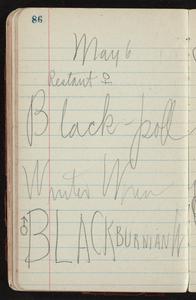 86
May 6
Restart ♀
Black-poll
Winter Wren
♂ BLACKBURNIAN W